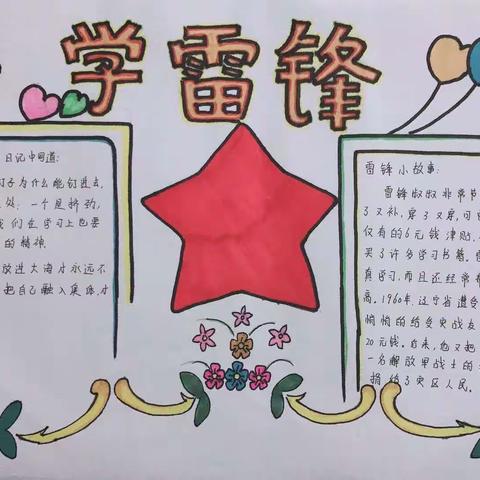 学雷锋
日记中写道:
钉子为什么能钉进去,
一个是挤劲,
我们在学习上也要
的精神.
放进大海才永远不
把自己融入集体才
雷锋小故事:
雷锋叔叔非常节
了又补,穿了又穿,可
仅有的6元钱津贴,
买了许多学习书籍.
真学习,而且还经常帮
高.1960年,辽宁省遭
悄悄的给受灾战友
20元钱.后来,他又把
一名解放军战士的
捐给了灾区人民.